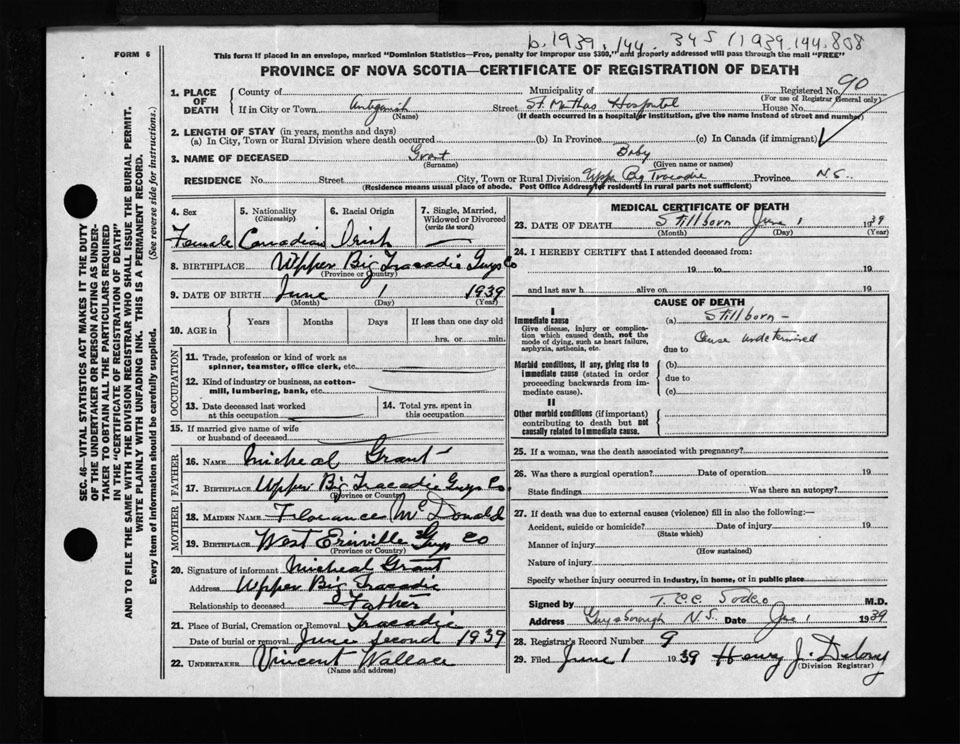 b. 1939. 144. 345 (1939.144.808
FORM 6
This form if placed in an envelope, marked "Dominion Statistics—Free, penalty for improper use $300," and properly addressed will pass through the mail "FREE"
PROVINCE OF NOVA SCOTIA—CERTIFICATE OF REGISTRATION OF DEATH
1. PLACE OF DEATH
County of Municipality of Registered No. 90
(For use of Registrar General only)
If in City or Town Antigonish Street St. Marthas Hospital House No.
(Name) (If death occurred in a hospital or institution, give the name instead of street and number)
2. LENGTH OF STAY (in years, months and days)
(a) In City, Town or Rural Division where death occurred (b) In Province (c) In Canada (if immigrant)
3. NAME OF DECEASED Grant Baby
(Surname) (Given name or names)
RESIDENCE No. Street City, Town or Rural Division Upper Big Tracadie Province N.S.
(Residence means usual place of abode. Post Office Address for residents in rural parts not sufficient)
4. Sex Female
5. Nationality (Citizenship) Canadian
6. Racial Origin Irish
7. Single, Married, Widowed or Divorced (write the word) —
8. BIRTHPLACE Upper Big Tracadie Guys Co
(Province or Country)
9. DATE OF BIRTH June 1 1939
(Month) (Day) (Year)
10. AGE in Years Months Days If less than one day old
hrs. or min.
OCCUPATION
11. Trade, profession or kind of work as spinner, teamster, office clerk, etc.
12. Kind of industry or business, as cotton-mill, lumbering, bank, etc.
13. Date deceased last worked at this occupation
14. Total yrs. spent in this occupation
15. If married give name of wife or husband of deceased
FATHER
16. NAME Micheal Grant
17. BIRTHPLACE Upper Big Tracadie Guys Co.
(Province or Country)
MOTHER
18. MAIDEN NAME Florance McDonald
19. BIRTHPLACE West Erinville Guys Co
(Province or Country)
20. Signature of informant Micheal Grant
Address Upper Big Tracadie
Relationship to deceased Father
21. Place of Burial, Cremation or Removal Tracadie
Date of burial or removal June second 1939
22. UNDERTAKER Vincent Wallace
(Name and address)
MEDICAL CERTIFICATE OF DEATH
23. DATE OF DEATH Stillborn June 1 1939
(Month) (Day) (Year)
24. I HEREBY CERTIFY that I attended deceased from:
19 to 19
and last saw h alive on 19
CAUSE OF DEATH
I
Immediate cause
Give disease, injury or complication which caused death, not the mode of dying, such as heart failure, asphyxia, asthenia, etc.
(a) Stillborn -
Cause undetermined
due to
Morbid conditions, if any, giving rise to immediate cause (stated in order proceeding backwards from immediate cause).
(b)
due to
(c)
II
Other morbid conditions (if important) contributing to death but not causally related to immediate cause.
25. If a woman, was the death associated with pregnancy?
26. Was there a surgical operation? Date of operation 19
State findings Was there an autopsy?
27. If death was due to external causes (violence) fill in also the following:—
Accident, suicide or homicide? Date of injury 19
(State which)
Manner of injury
(How sustained)
Nature of injury
Specify whether injury occurred in industry, in home, or in public place
Signed by M.D.
Address Guysborough N.S. Date June 1 1939
28. Registrar's Record Number 9
29. Filed June 1 1939 Henry J.
(Division Registrar)
SEC. 46—VITAL STATISTICS ACT MAKES IT THE DUTY
OF THE UNDERTAKER OR PERSON ACTING AS UNDER-
TAKER TO OBTAIN ALL THE PARTICULARS REQUIRED
IN THE "CERTIFICATE OF REGISTRATION OF DEATH"
AND TO FILE THE SAME WITH THE DIVISION REGISTRAR WHO SHALL ISSUE THE BURIAL PERMIT.
WRITE PLAINLY WITH UNFADING INK. THIS IS A PERMANENT RECORD.
Every item of information should be carefully supplied. (See reverse side for instructions.)